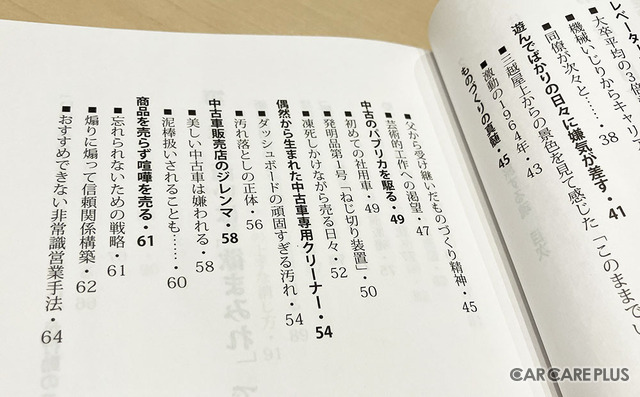 レベータ
■大卒平均の3倍
■機械いじりからキャリア
■同僚が次々と……・38
遊んでばかりの日々に嫌気が差す・41
■三越屋上からの景色を見て感じた「このままでい
■激動の1964年・43
ものづくりの真髄・45
■父から受け継いだものづくり精神・45
■芸術的工作への渇望・47
中古のパブリカを駆る・49
■初めての社用車・49
■発明品第1号「ねじ切り装置」・50
■凍死しかけながら売る日々・52
偶然から生まれた中古車専用クリーナー・54
■ダッシュボードの頑固すぎる汚れ・54
■汚れ落としの正体・56
中古車販売店のジレンマ・58
■美しい中古車は嫌われる・58
■泥棒扱いされることも……・60
商品を売らず喧嘩を売る・61
■忘れられないための戦略・61
■煽りに煽って信頼関係構築・62
■おすすめできない非常識営業手法・64
CAR CARE PLUS